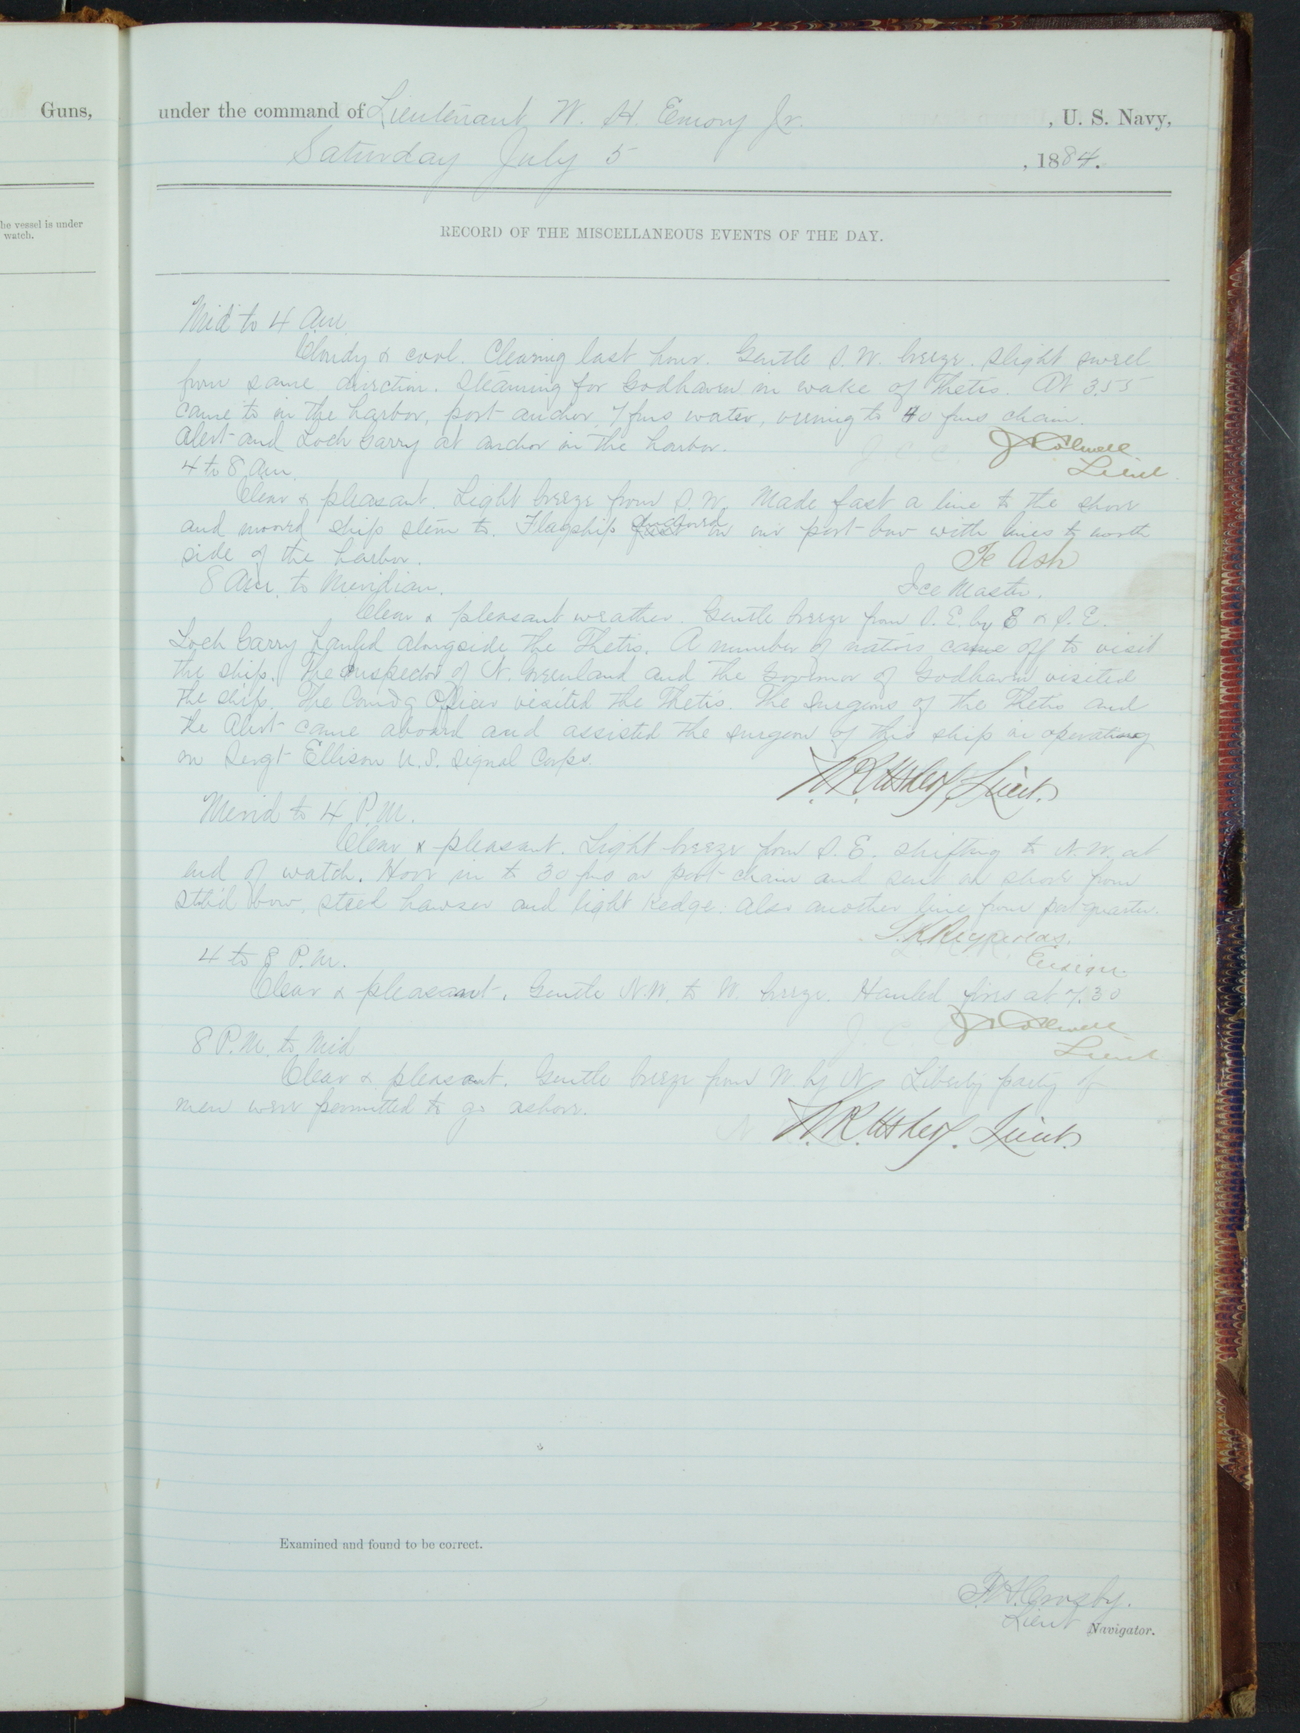 Guns,
under the command of Lieutenant W. H. Emory Jr. , U. S. Navy,
Saturday July 5 , 1884.
he vessel is under
watch.
RECORD OF THE MISCELLANEOUS EVENTS OF THE DAY.
Mid to 4 Am.
Cloudy & cool. Clearing last hour. Gentle S. W. breeze. Slight swell
from same direction. Steaming for Godhaven in wake of Thetis. At 3.55
came to in the harbor, port anchor, 7 fms water, veering to 40 fms chain.
Alert and Loch Garry at anchor in the harbor.
J C Colwell
Lieut
4 to 8 Am.
Clear & pleasant. Light breeze from S. W. Made fast a line to the shore
and moored ship stern to. Flagship anchored on our port bow with lines to north
side of the harbor.
Fe Ash
Ice Master.
8 Am. to Meridian.
Clear & pleasant weather. Gentle breeze from S. E. by E & S. E.
Loch Garry hauled alongside the Thetis. A number of natives came off to visit
the ship. The Inspector of N. Greenland and the Governor of Godhaven visited
the ship. The Comd'g Officer visited the Thetis. The Surgeons of the Thetis and
the Alert came aboard and assisted the surgeon of this ship in operating
on Sergt Ellison U. S. Signal Corps.
N. R. Usher, Lieut.
Merid to 4 P. M.
Clear & pleasant. Light breeze from S. E. shifting to N. W. at
end of watch. Hove in to 30 fms on port chain and sent on shore from
stb'd bow, steel hawser and light kedge: also another line from port quarter.
L. K. Reynolds.
Ensign.
4 to 8 P. M.
Clear & pleasant. Gentle N. W. to W. breeze. Hauled fires at 7.30
J C Colwell
Lieut
8 P. M. to Mid
Clear & pleasant. Gentle breeze from W. by N. Liberty party of
men were permitted to go ashore.
N. R. Usher. Lieut.
Examined and found to be correct.
F. H. Crosby.
Lieut Navigator.